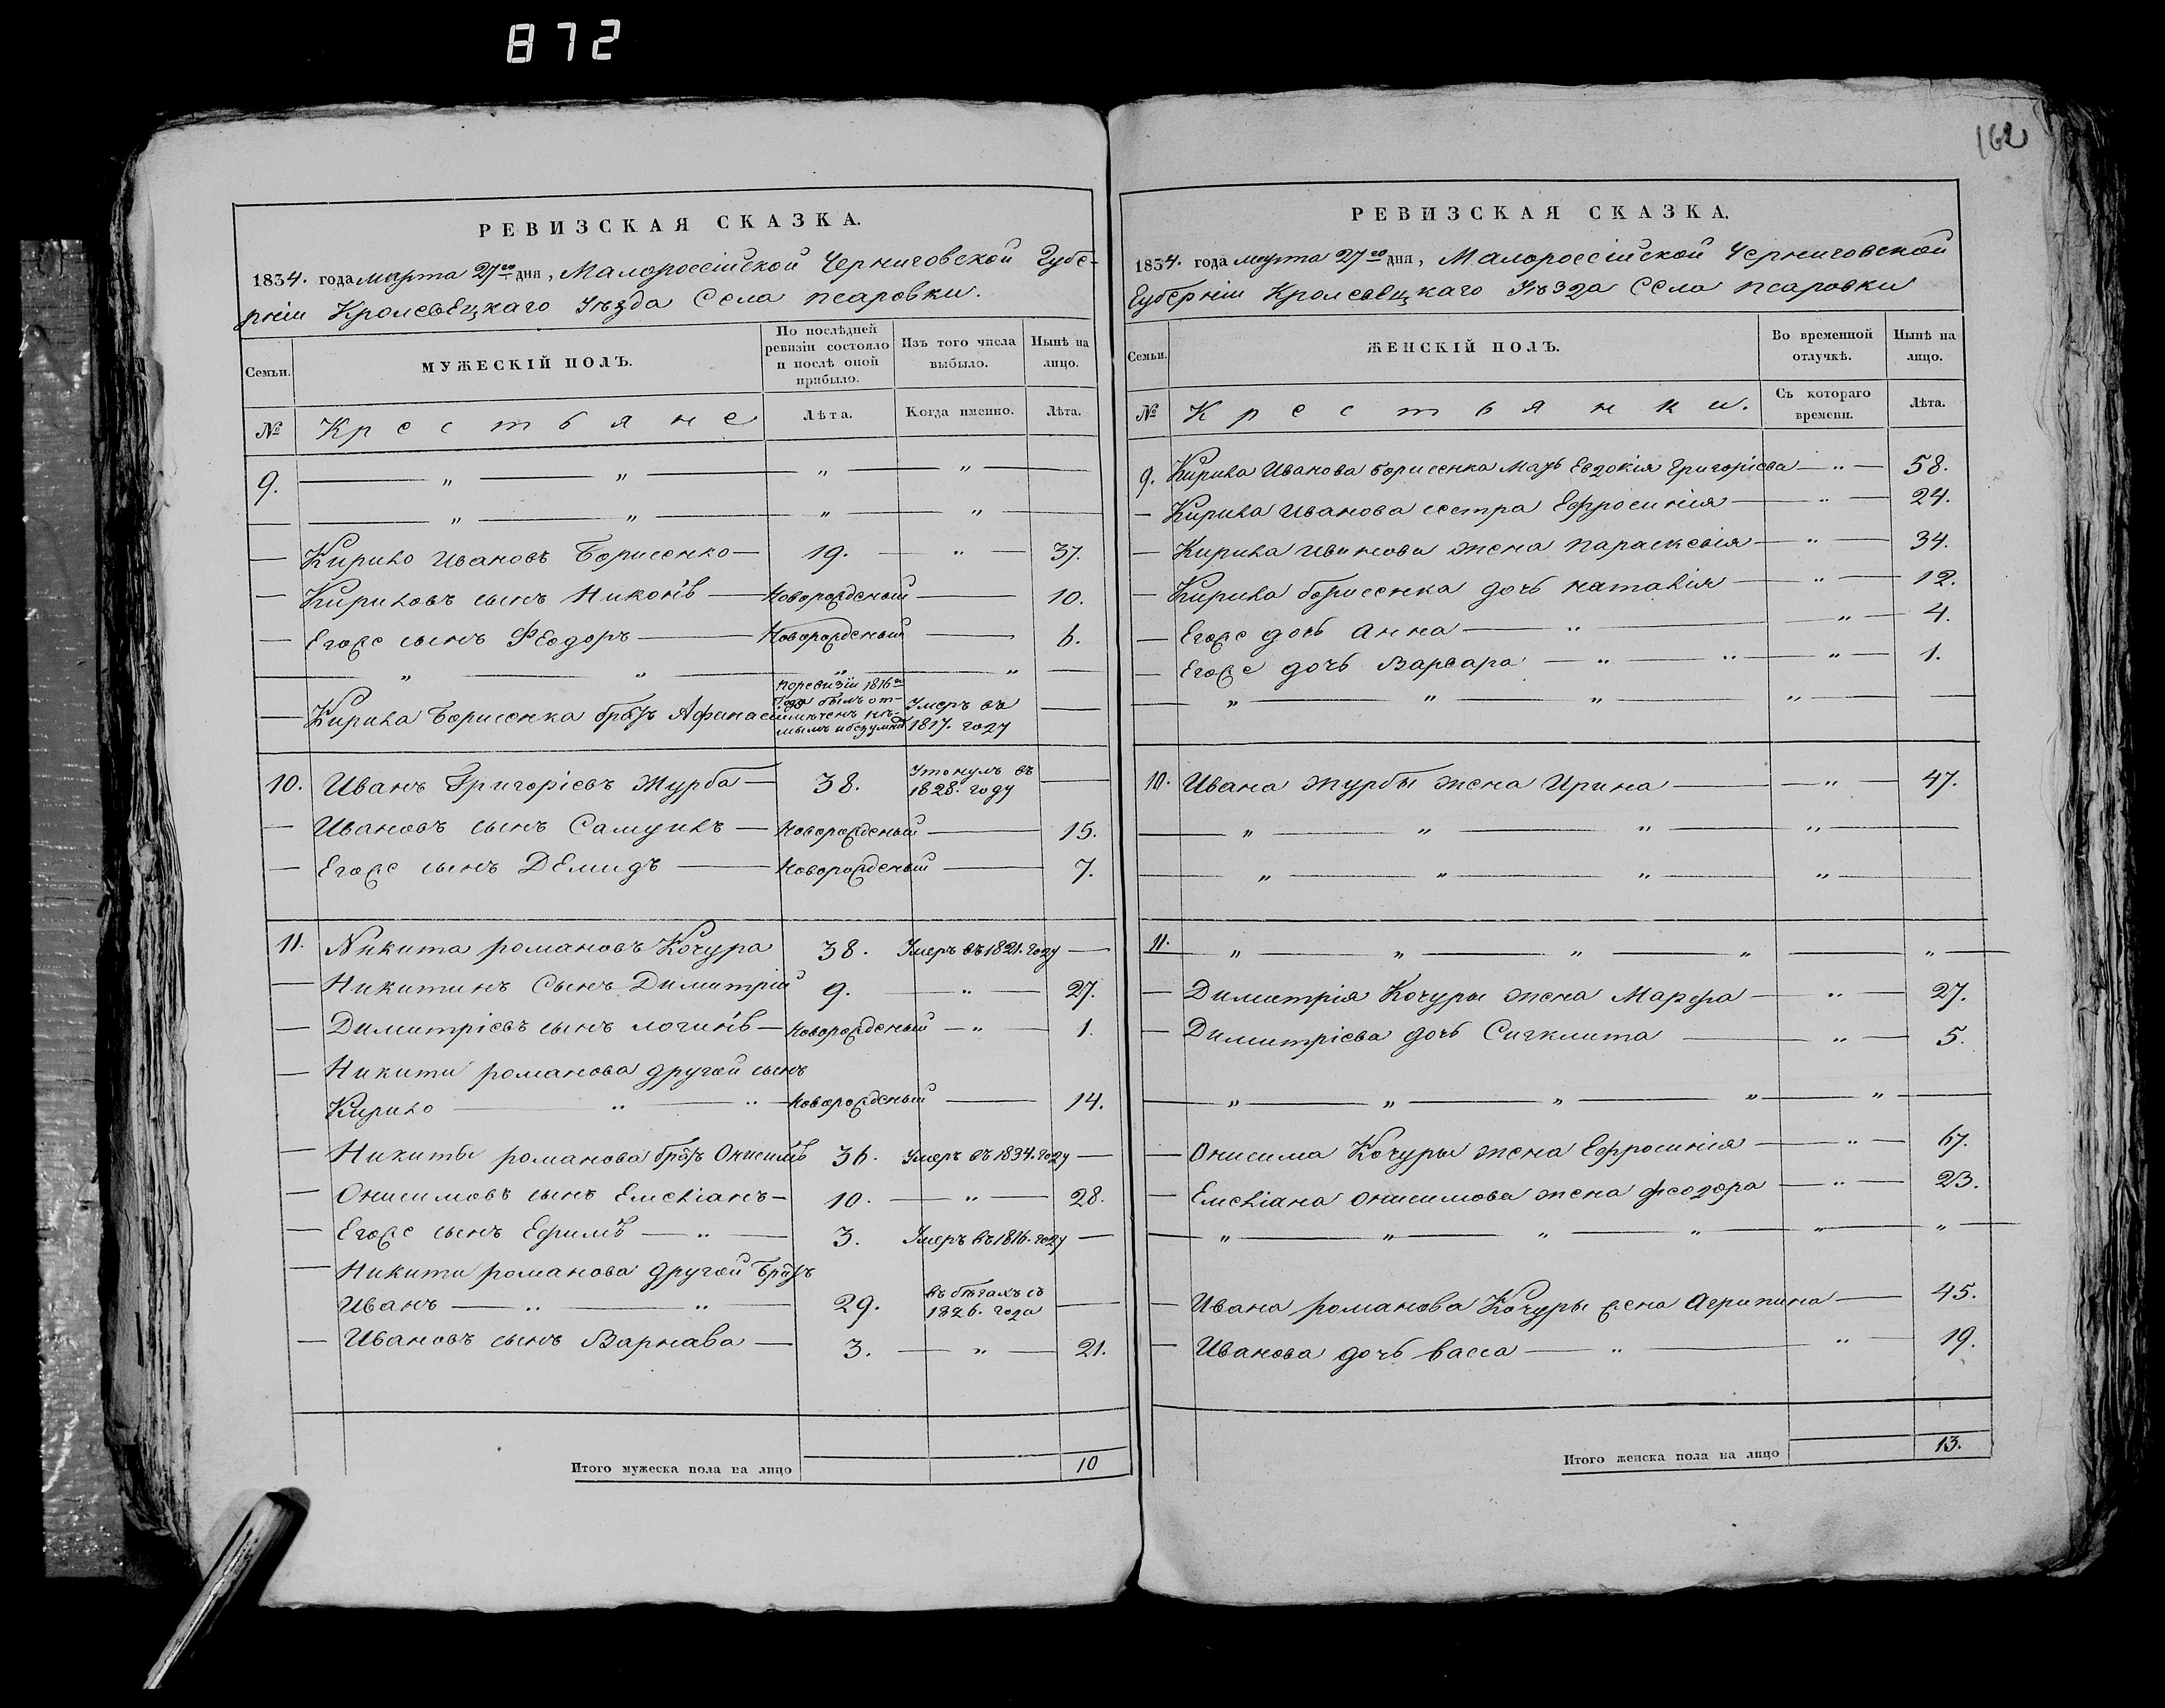 872
162
РЕВИЗСКАЯ СКАЗКА.
1834. года марта 27го дня, Малороссійской Черниговской Губе-
рніи Кролевецкаго Уѣзда Села псаровки.
Семьи.
МУЖЕСКІЙ ПОЛЪ.
По послѣдней ревизіи состояло и послѣ оной прибыло.
Изъ того числа выбыло.
Нынѣ на лицо.
№ Крестьяне Лѣта. Когда именно. Лѣта.
9. — „ — „ — „ — „ —
— — „ — „ — „ — „ —
— Кирило Ивановъ Борисенко — 19. — „ — 37.
— Кириловъ сынъ Никонъ — Новорожденый — 10.
— Егоже сынъ Феодоръ — Новорожденый — 6.
— „ — „ — „ — „ —
— Кирила Борисенка братъ Афанасий
поревизіи 1816го
года былъ от-
мѣченъ нѣ-
мымъ и безумнъ
Умеръ въ
1817. году —
10. Иванъ Григоріевъ Журба — 38. Утонулъ въ
1828. году —
— Ивановъ сынъ Самуилъ — Новорожденый — 15.
— Егоже сынъ Демидъ — Новорожденый — 7.
11. Никита романовъ Кочура 38. Умеръ въ 1821. году —
— Никитинъ Сынъ Димитрій 9. — „ — 27.
— Димитріевъ сынъ логинъ — Новорожденый — „ — 1.
— Никити романова другой сынъ
Кирило — „ — „ — Новорожденый — 14.
— Никиты романова братъ Онисимъ 36. Умеръ въ 1834. году —
— Онисимовъ сынъ Емеліанъ — 10. — „ — 28.
— Егоже сынъ Ефимъ — „ — 3. Умеръ въ 1816. году —
— Никити романова другой братъ
Иванъ — „ — „ — 29. въ бѣгахъ съ
1826. года —
— Ивановъ сынъ Варнава — 3. — „ — 21.
Итого мужеска пола на лицо 10
РЕВИЗСКАЯ СКАЗКА.
1834. года марта 27го дня, Малороссійской Черниговской
Губерніи Кролевецкаго Уѣзда Села псаровки
Семьи.
ЖЕНСКІЙ ПОЛЪ.
Во временной отлучкѣ.
Нынѣ на лицо.
№ Крестьянки. Съ котораго времени. Лѣта.
9. Кирила Иванова борисенка мать Евдокія Григоріева — „ — 58.
— Кирила Иванова сестра Ефросинія — „ — 24.
— Кирила Иванова жена параскевія — „ — 34.
— Кирила борисенка дочь наталія — „ — 12.
— Егоже дочь анна — „ — „ — 4.
— Егоже дочь Варвара — „ — „ — „ — 1.
„ — „ — „ — „ — —
10. Ивана журбы жена Ирина — „ — 47.
— „ — „ — „ — „ —
— „ — „ — „ — „ —
11. — „ — „ — „ — „ — „ —
— Димитрія Кочуры жена Марфа — „ — 27.
— Димитріева дочь Сигклита — „ — 5.
— „ — „ — „ — „ — „ —
— Онисима Кочуры жена Ефросинія — „ — 67.
— Емеліана онисимова жена феодора — „ — 23.
— „ — „ — „ — „ — „ — „ —
— Ивана романова Кочуры жена агрипина — 45.
— Иванова дочь васса — „ — „ — 19.
Итого женска пола на лицо 13.